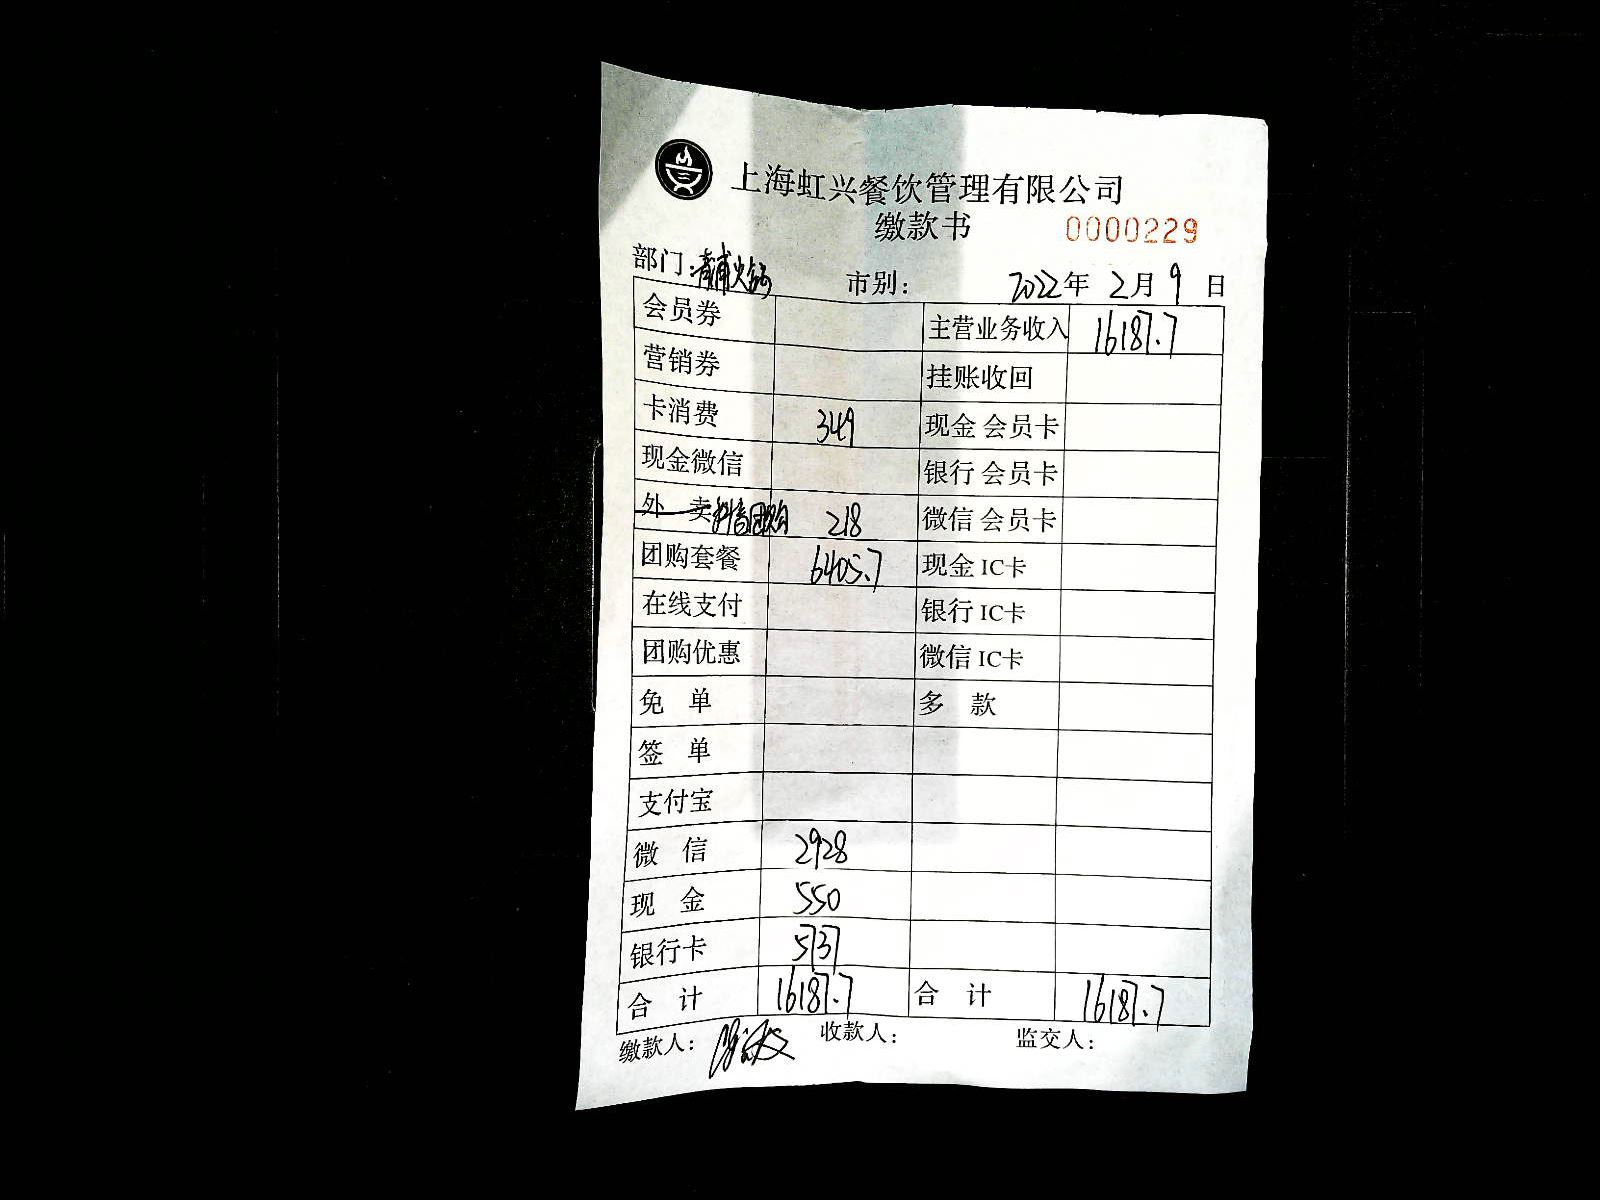 上海虹兴餐饮管理有限公司
缴款书 0000229
部门:青浦火锅 市别: 2022年 2月 9 日
会员券 主营业务收入 16187.7
营销券 挂账收回
卡消费 349 现金 会员卡
现金微信 银行 会员卡
外 卖 抖音团购 218 微信 会员卡
团购套餐 6405.7 现金 IC卡
在线支付 银行 IC卡
团购优惠 微信 IC卡
免 单 多 款
签 单
支付宝
微 信 2928
现 金 550
银行卡 5737
合 计 16187.7 合 计 16187.7
缴款人: 收款人: 监交人: